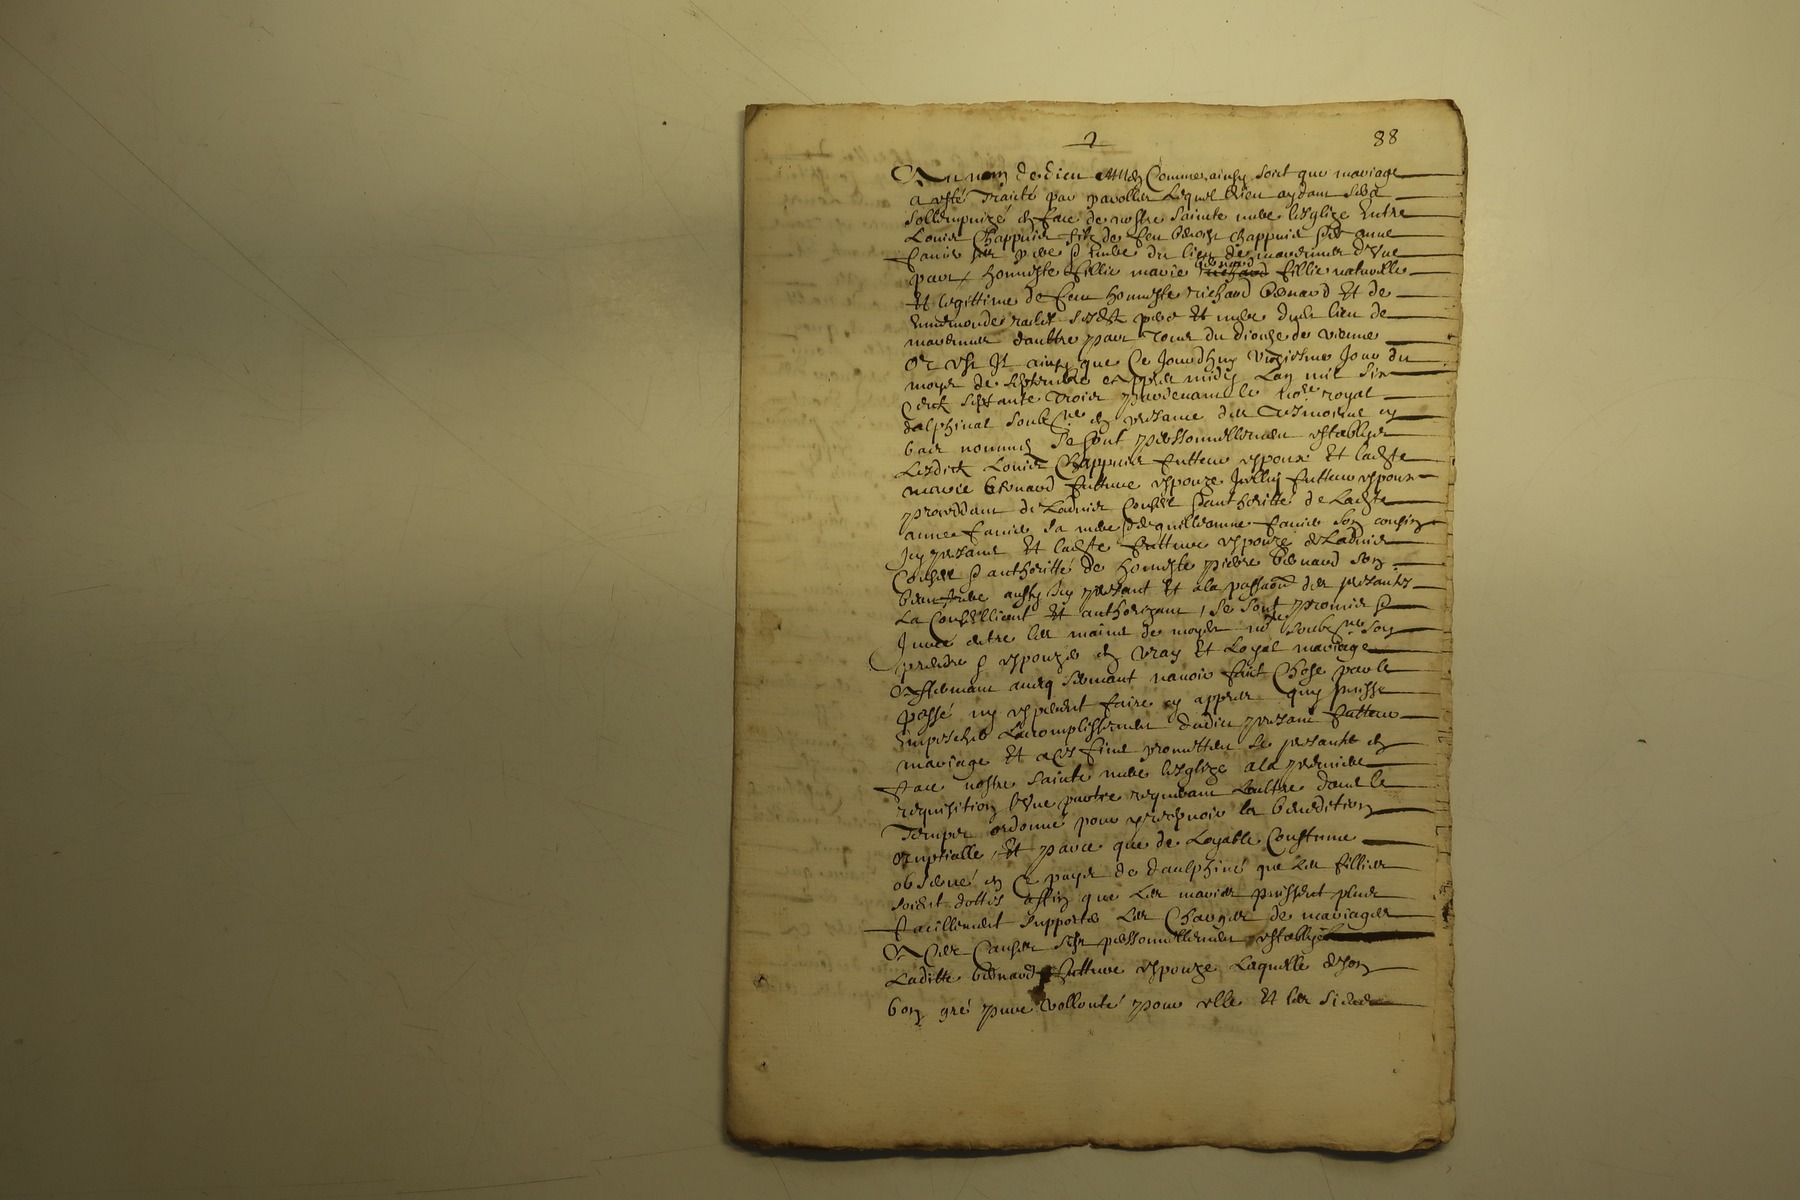 2
88
Au nom de dieu Amen Comme ainsy soit que mariage
a esté Traité par parolles Lequel dieu aydant sera
sollempnizé en face de nostre sainte mere lesglize Entre
Louis Chappuis filz de feu benoist chappuis et anne
faure pere et mere du lieu de d'une
part / honneste fillie marie bernard fillie naturelle
Et legittime de feu honneste richard bernard Et de
ses pere Et mere dudit lieu de
d'aultre part Tous du dioceze de vienne
Or est Il ainsy que Ce Jourdhuy Jour du
moys de septembre appres midy Lan mil six
Centz septante Trois pardevant le no.re royal
dalphinal soubz.ne en presance des Tesmoins en
bas nommés Se sont personnellement establys
Lesdictz Louis Chappuis futteur espoux Et ladite
marie bernard futture espouze Icelluy futteur espoux
procedant de Ladvis Conseil et authoritté de Ladite
anne faure sa mere de guilleaume faure son cousin
Icy presant Et ladite futture espouze de Ladvis
Conseil et authoritté de honneste pierre bernard son
beau frere aussy Icy presant Et a la passaon des presantes
La Conseilliant Et authorizant / se sont promis et
Juré entre les mains de moydit no.re soubz.ne soy
prendre et espouzer en vray Et Loyal mariage
Affermant avecq sermant navoir fait Chose par le
passé ny esperent faire cy appres quy puisse
empescher Lacomplissement dudict presant futteur
mariage Et a ces fins promettent se presanter en
face nostre sainte mere lesglize a la premiere
requisition Lune partie requerant Laultre dans le
Temps ordonné pour recepvoir la benediction
nuptialle, Et parce que de Loyable Coustume
observé en Ce pays de dauphiné que les fillies
soient dottés affin que Les maries puissent plus
facillement supporter Les Charges de mariages
A Ces Causes sest personnellement establye
Laditte bernard futture espouze Laquelle de son
bon gré pure vollonté pour elle Et les siens